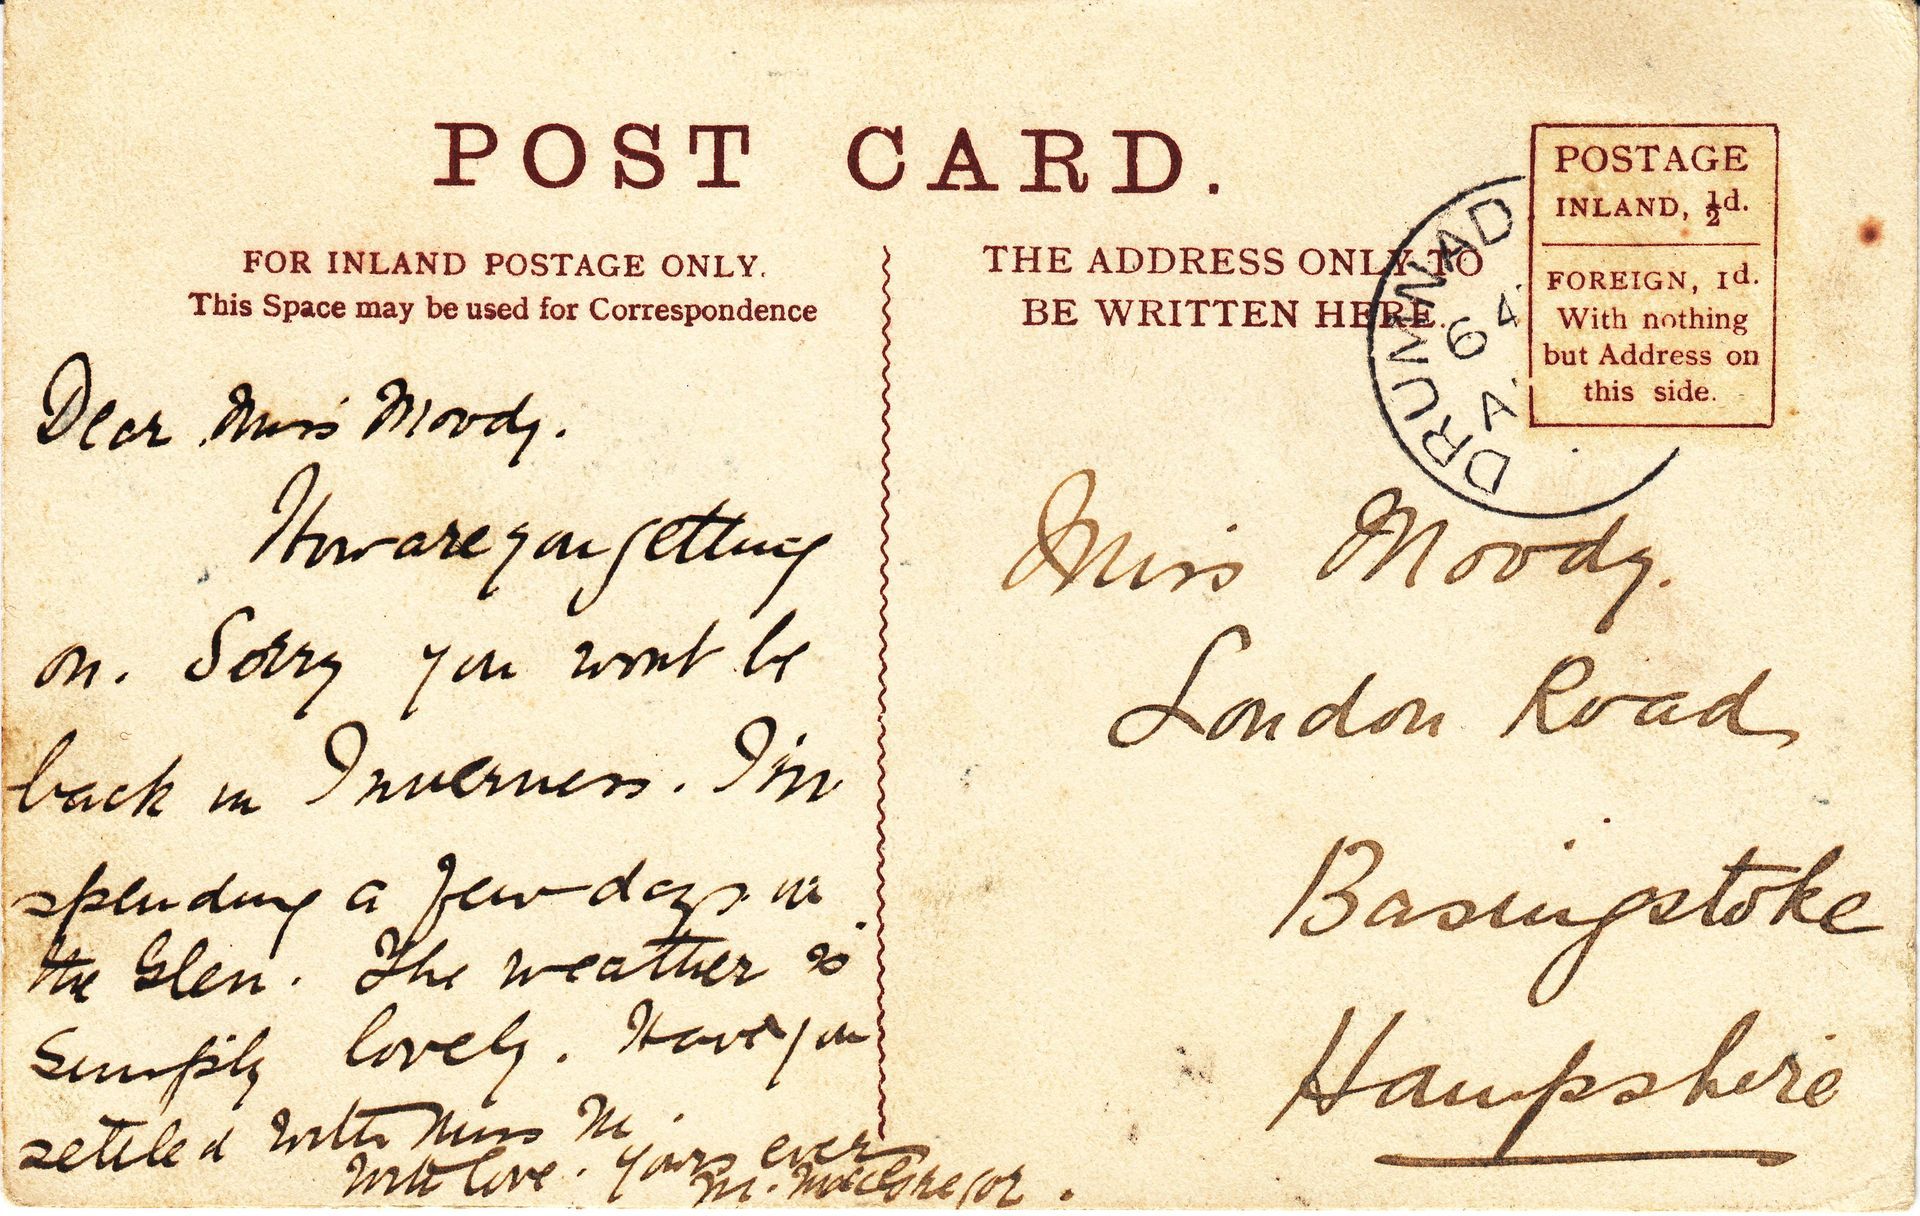 POST CARD.
FOR INLAND POSTAGE ONLY.
This Space may be used for Correspondence
THE ADDRESS ONLY TO
BE WRITTEN HERE.
POSTAGE
INLAND, ½d.
FOREIGN, 1d.
With nothing
but Address on
this side.
DRUMNAD
A.
6 4.
Dear Miss Moody.
How are you getting
on. Sorry you wont be
back in Inverness. I'm
spending a few days in
the Glen. The weather is
simply lovely. Have you
settled with Miss M.
With love. Yours ever
M. MacGregor.
Miss Moody.
London Road
Basingstoke
Hampshire